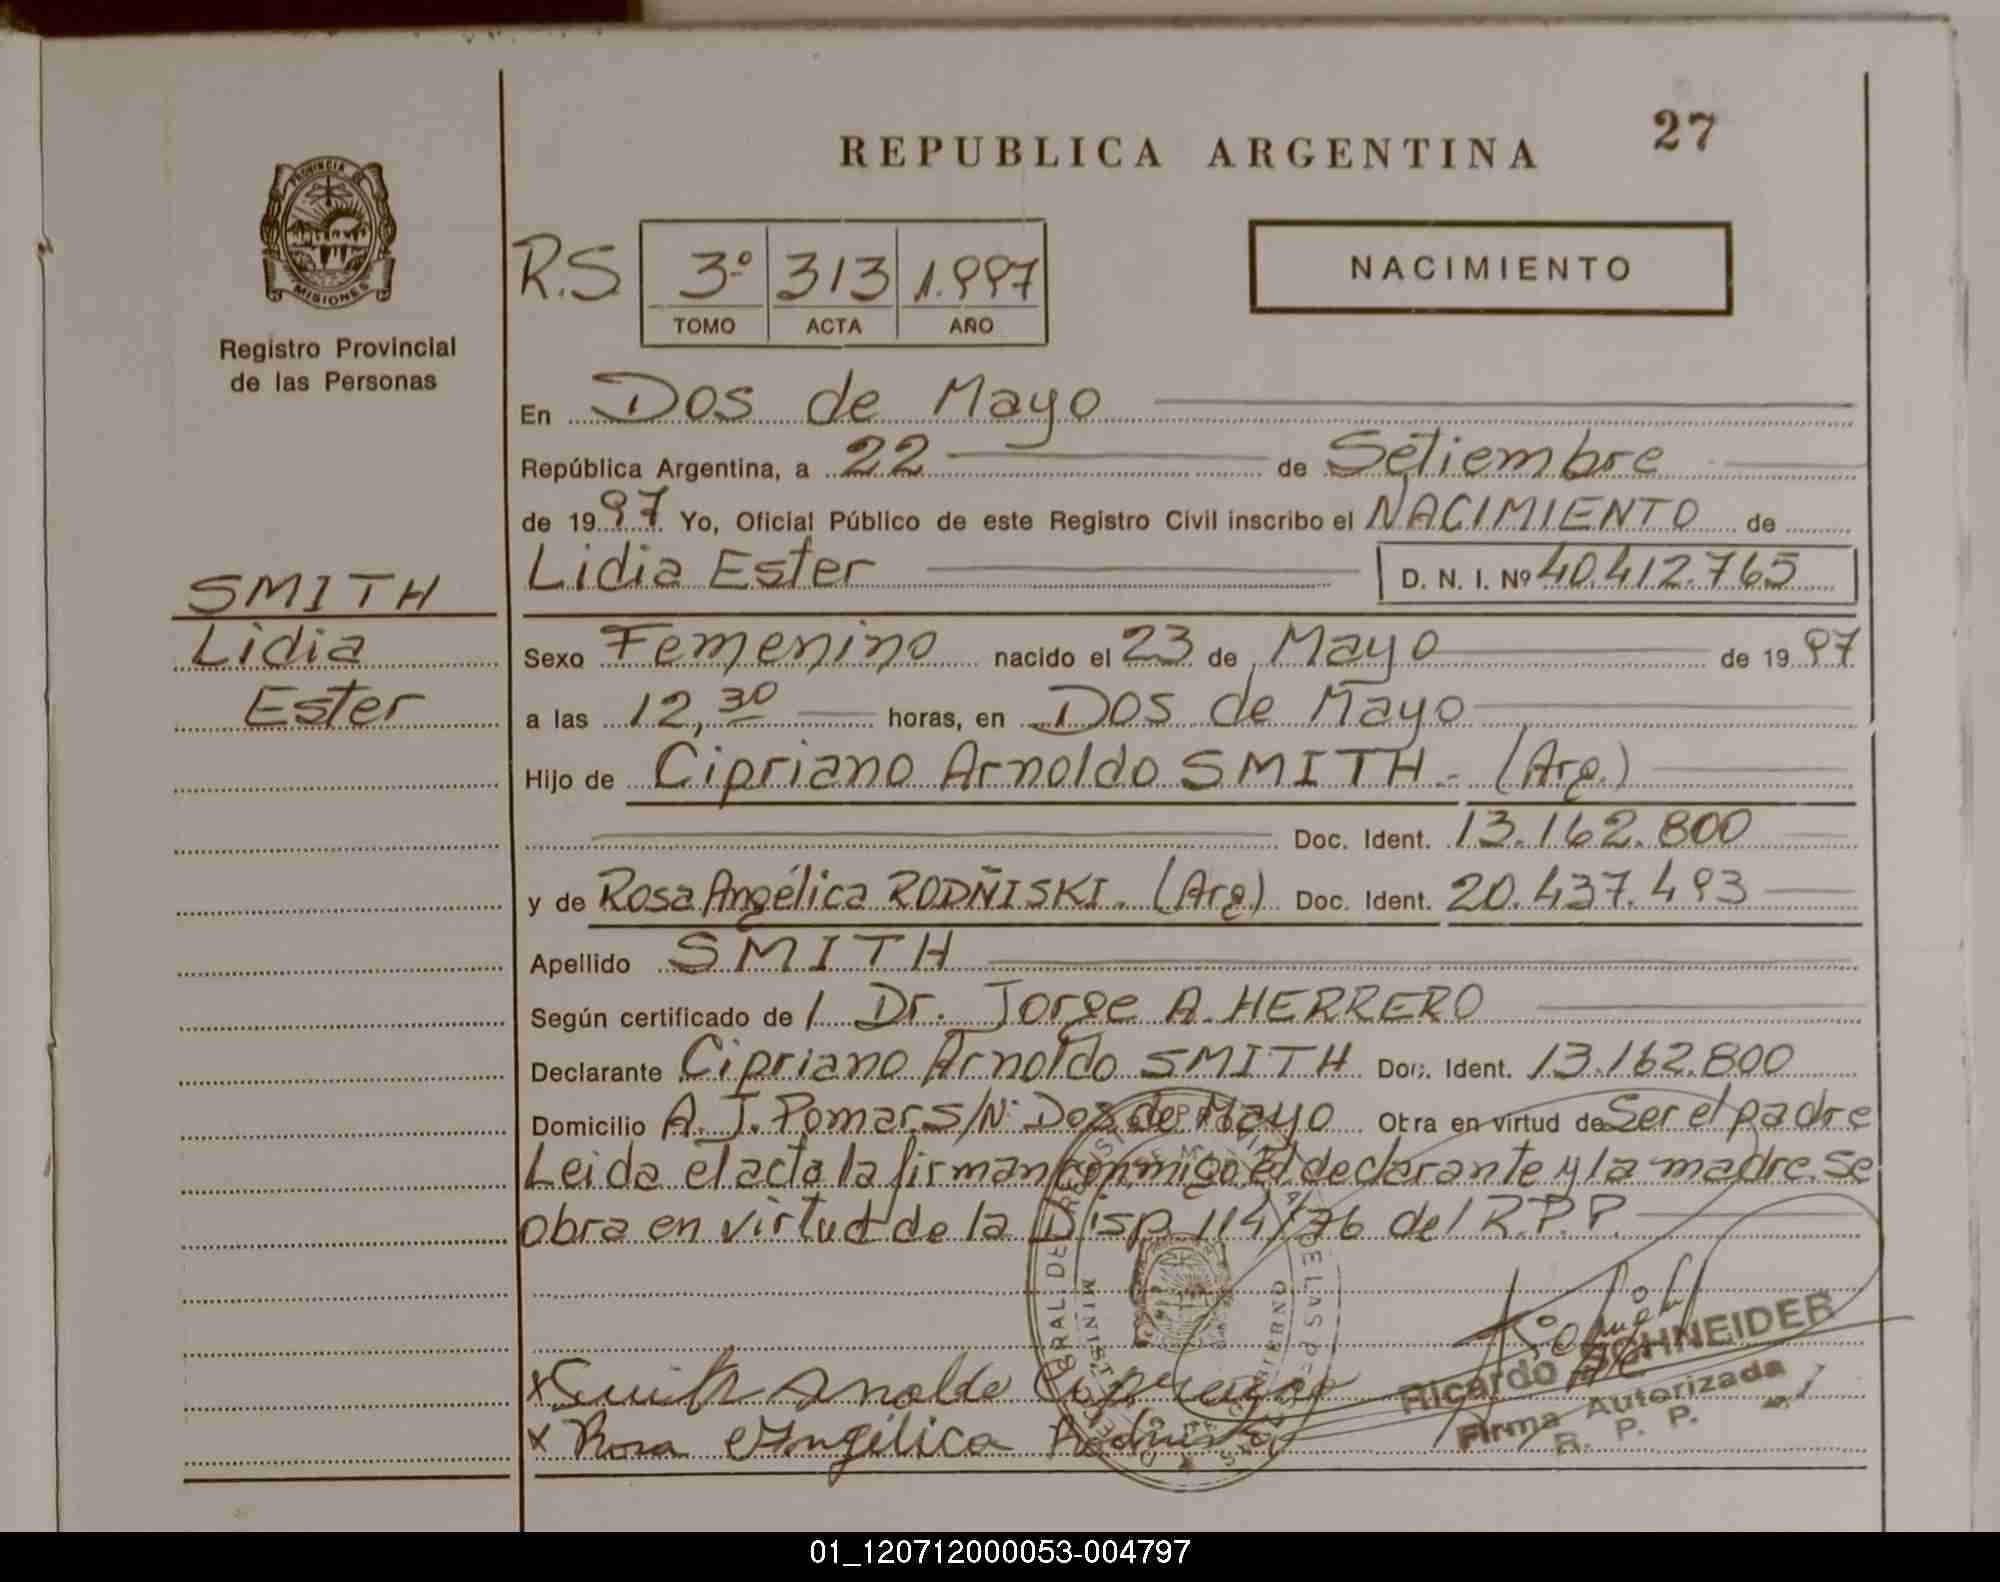 27
REPUBLICA ARGENTINA
PROVINCIA DE
MISIONES
Registro Provincial
de las Personas
NACIMIENTO
R.S. 3º 313 1.997
TOMO ACTA AÑO
En Dos de Mayo
República Argentina, a 22 de Setiembre
de 1997 Yo, Oficial Público de este Registro Civil inscribo el NACIMIENTO de
Lidia Ester D. N. I. Nº 40.412.765
SMITH
Lidia
Ester
Sexo Femenino nacido el 23 de Mayo de 1997
a las 12,30 horas, en Dos de Mayo
Hijo de Cipriano Arnoldo SMITH.- (Arg.)
Doc. Ident. 13.162.800
y de Rosa Angélica RODÑISKI. (Arg) Doc. Ident. 20.437.493
Apellido SMITH
Según certificado de / Dr. Jorge A. HERRERO
Declarante Cipriano Arnoldo SMITH Doc. Ident. 13.162.800
Domicilio A. J. Pomar S/Nº Dos de Mayo Obra en virtud de Ser el padre
Leida el acta la firman conmigo El declarante y la madre. Se
obra en virtud de la Disp. 114/76 del R.P.P.
x Smith Arnoldo Cipriano
x Rosa Angélica
Ricardo SCHNEIDER
Firma Autorizada
R. P. P.
01_120712000053-004797